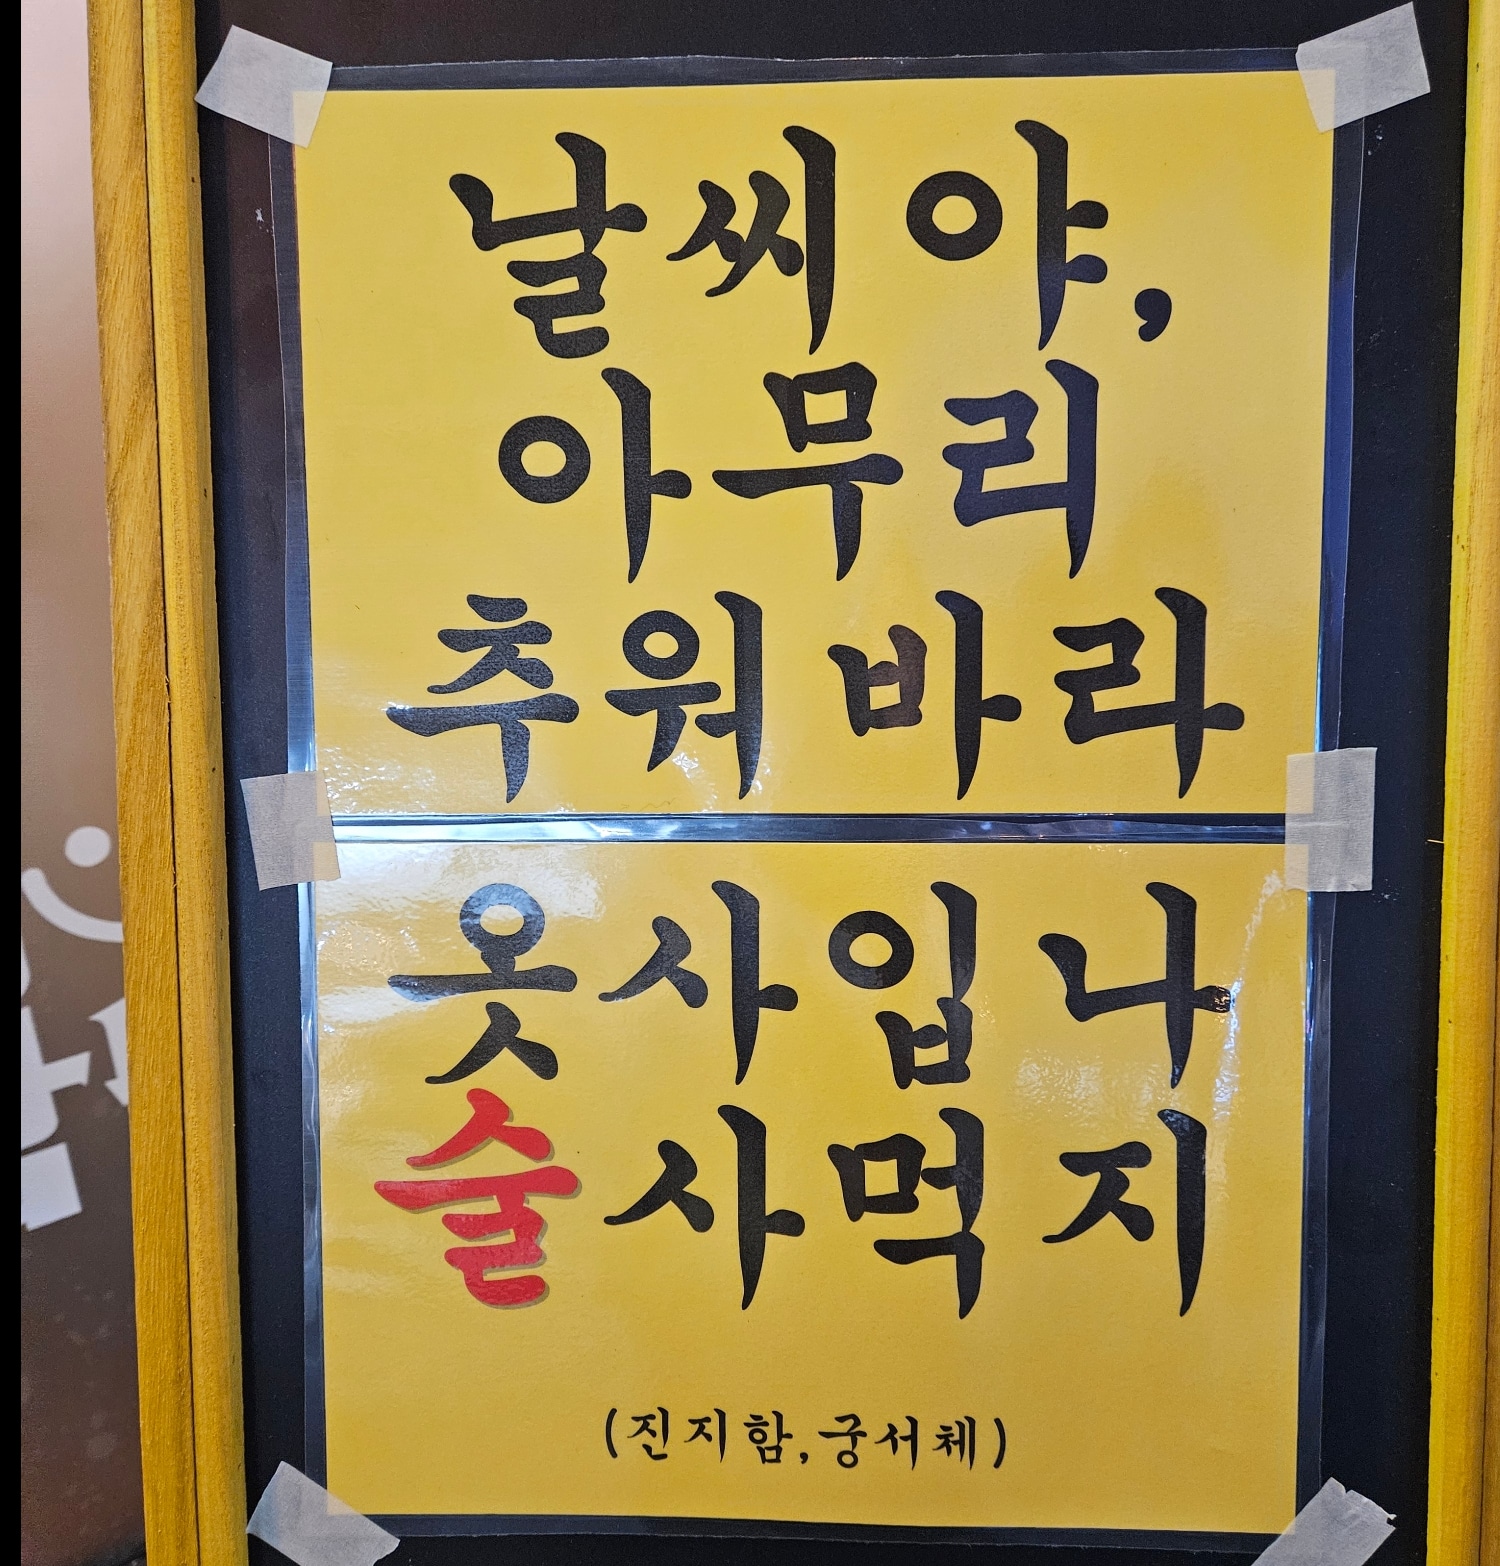 날씨야,
아무리
추워바라
옷사입나
술사먹지
(진지함,궁서체)